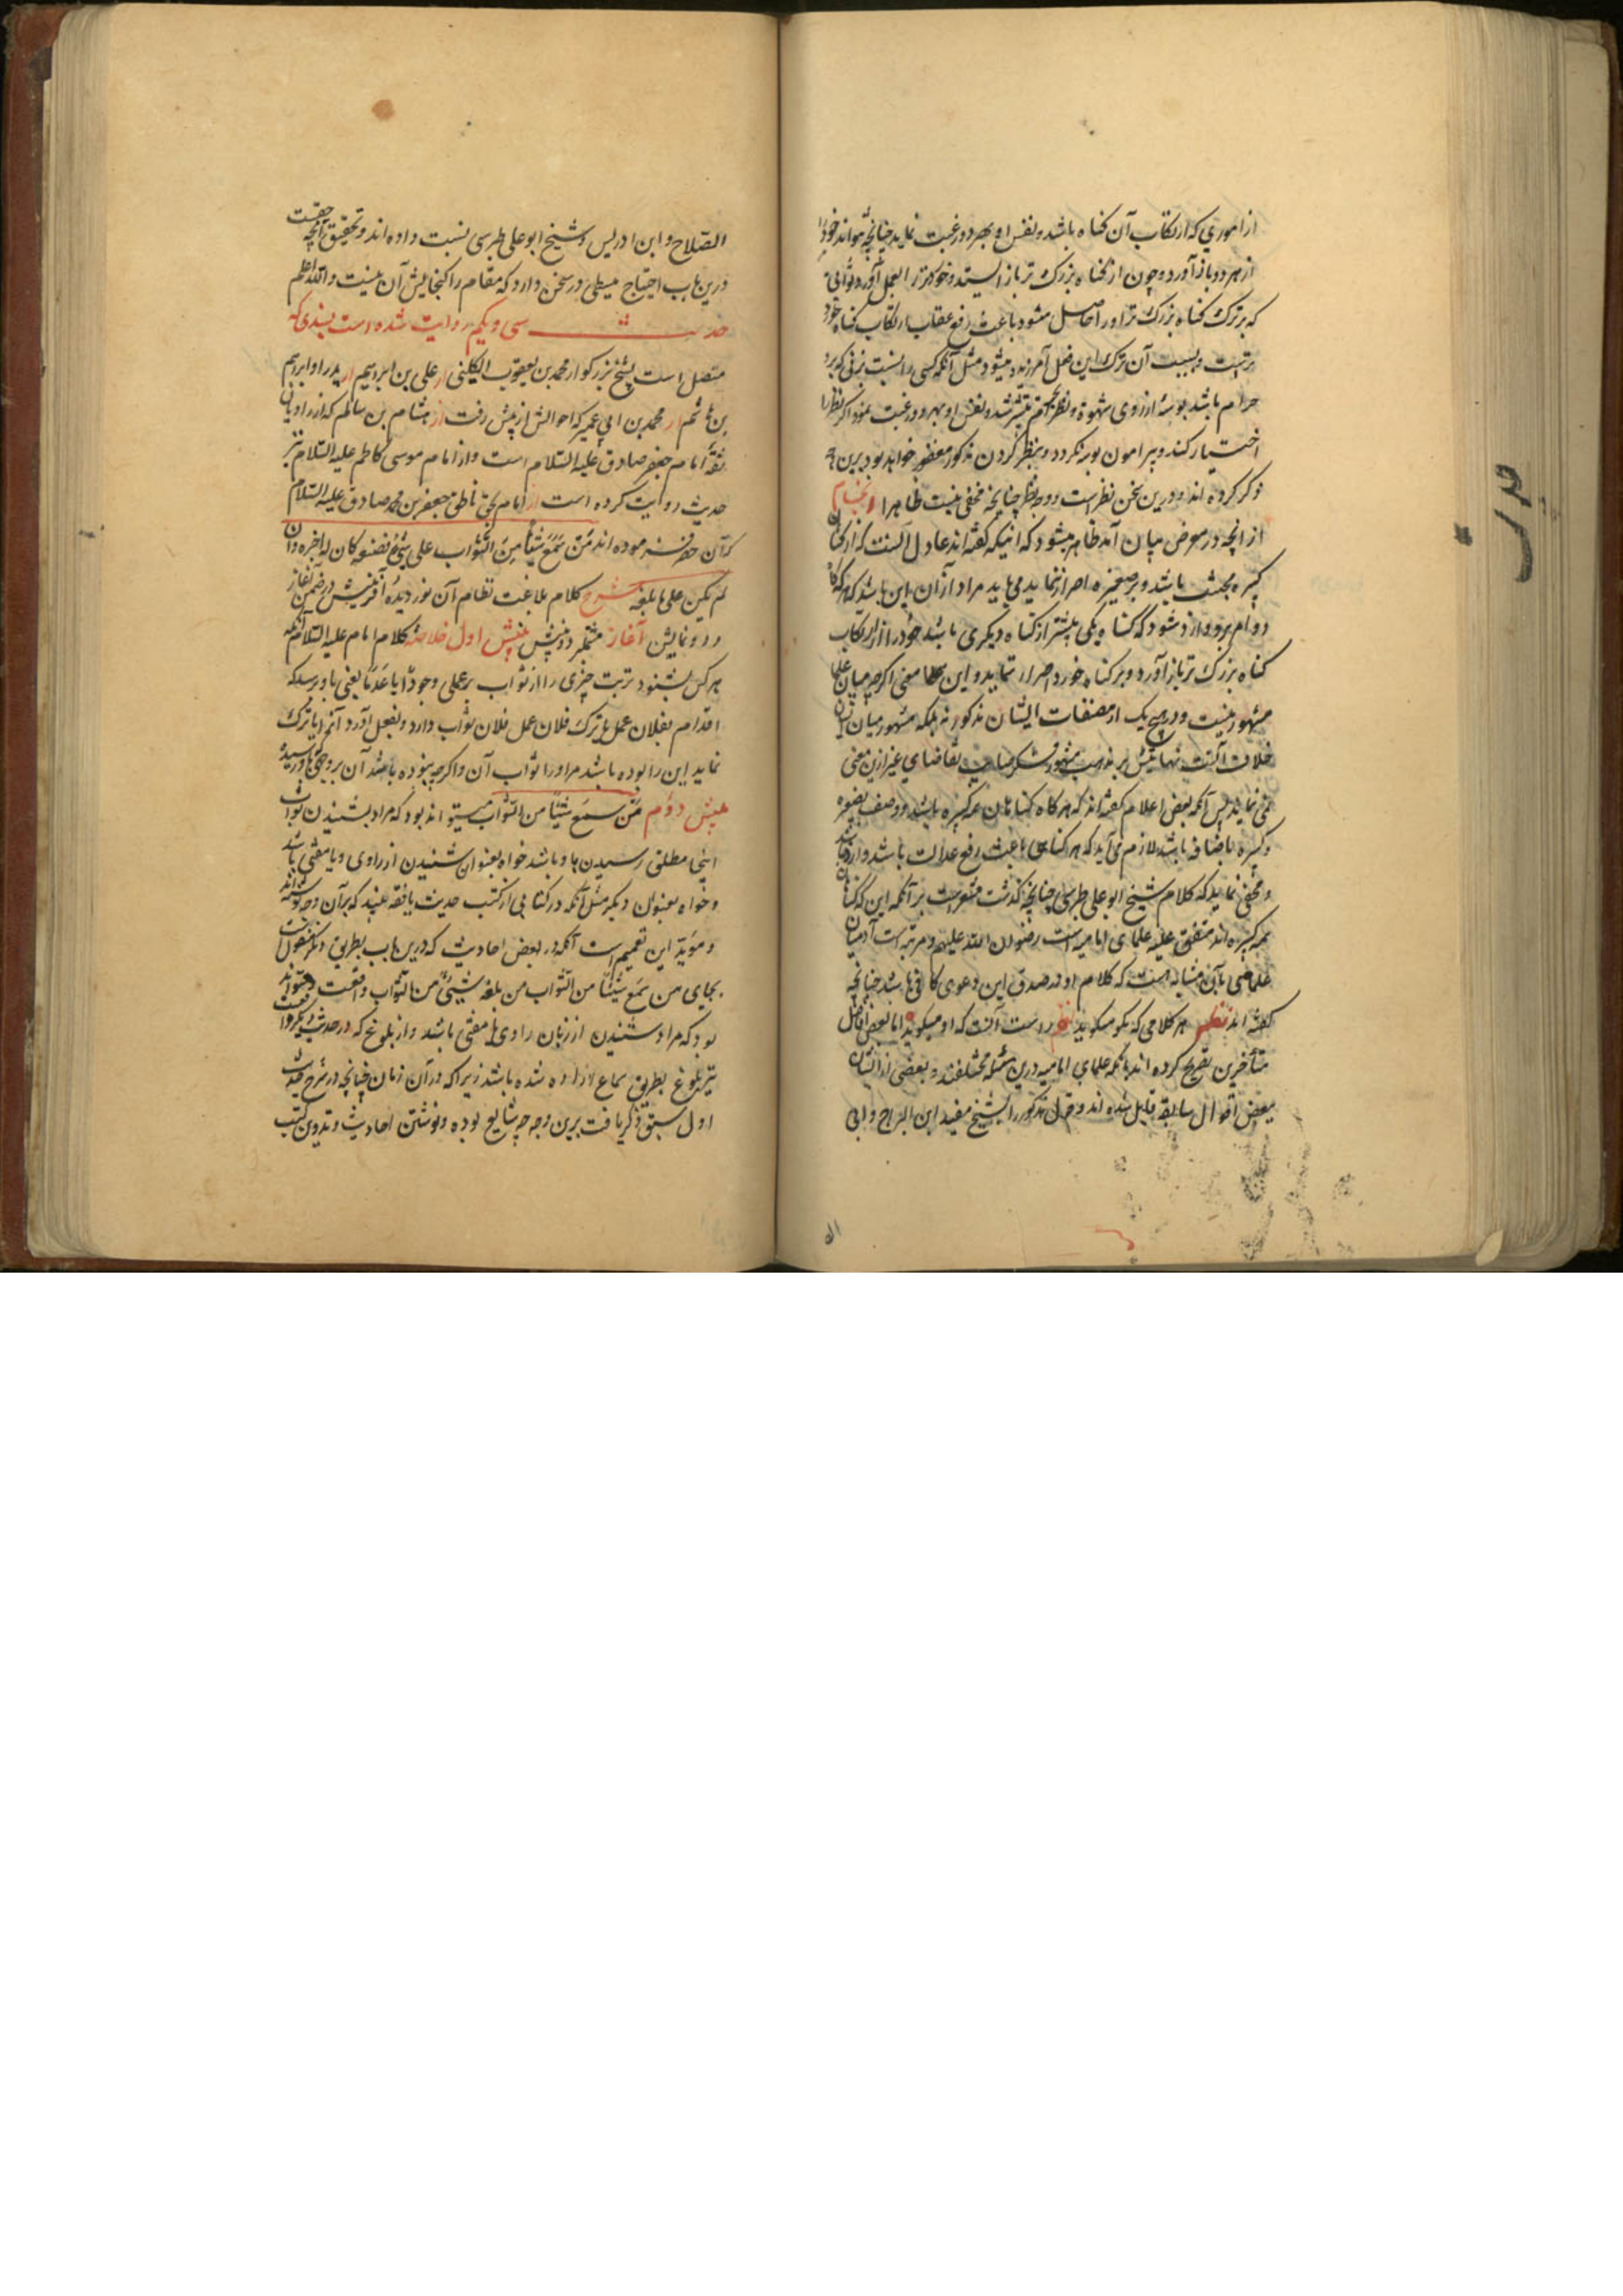 از اموری که ارتکاب آن گناه باشد و نفس او بهر دو رغبت نماید چنانچه تواند خود را
از هر دو باز آورد و چون از گناه بزرگ تر باز ایستد و خوردتر را بعمل آورد ثوابی
که بر ترک گناه بزرگ تر او را حاصل میشود باعث رفع عقاب ارتکاب گناه خورد
است و بسبب آن ترک این فعل آمرزیده میشود مثل آنکه کسی را نسبت بزنی که برو
حرام باشد بوسه از روی شهوة و نظر میسر شد و نفس او بهر دو رغبت نمود اگر نظر را
اختیار کند و پیرامون بوسه نگردد و نظر کردن مذکور مغفور خواهد بود برین
ذکر کرده اند و درین سخن نظر است و وجه نظر چنانچه مخفی نیست ظاهرا انجام
از انچه در معرض بیان آمد ظاهر میشود که انیکه گفته اند عادل آنست که از گناهان
کبیره مجتنب باشد و بر صغیره اصرار ننماید می باید مراد از آن این باشد که هر گاه
دو ام برو وارد شود که گناه یکی بیشتر از گناه دیگری باشد خود را از ارتکاب
گناه بزرگ تر باز آورد و بر گناه خورد اصرار ننماید و این معنی اگرچه میان علما
مشهور نیست و در هیچ یک از مصنفات ایشان مذکور نه بلکه مشهور میان ایشان
خلاف آنست نهایتش بر مذهب مشهور تقاضای غیر ازین معنی
نمی نماید پس آنکه بعض اعلام گفته اند که هر گاه گناهان همه کبیره باشد و وصف صغیره
و کبیره باضافه باشد لازم می آید که هر گناهی باعث رفع عدالت باشد وارد نباشد
و مخفی نماند که کلام شیخ ابو علی طبرسی چنانچه گذشت مشعر است بر آنکه این که گناهان
همه کبیره اند متفق علیه علمای امامیه است رضوان الله علیهم و مرتبه است آدمیان
علما بآن مثابه است که کلام او در صدق این دعوی کافی باشد چنانچه
گفته اند نظم هر کلامی که نکو میگوید راست آنست که او میگوید اما بعض افاضل
متأخرین تصریح کرده اند بآنکه علمای امامیه درین مسئله مختلفند و بعضی از ایشان
ببعض اقوال سابقه قایل شده اند و قول مذکور را بشیخ مفید ابن البراج و ابی
الصلاح و ابن ادریس و شیخ ابو علی طبرسی نسبت داده اند و تحقیق آنچه حقست
درین باب احتیاج ببسطی در سخن دارد که مقام را گنجایش آن نیست والله اعلم
حدیث سی و یکم روایت شده است بسندی که
متصل است بشیخ بزرگوار محمد بن یعقوب الکلینی از علی بن ابراهیم از پدر او ابراهیم
بن هاشم از محمد بن ابی عمیر که احوالش از پیش رفت از هشام بن سالم که از راویان
ثقه امام جعفر صادق علیه السلام است و از امام موسی کاظم علیه السلام نیز
حدیث روایت کرده است از امام بحق ناطق جعفر بن محمد صادق علیه السلام
که آن حضرت فرموده اند من سمع شیئا من الثواب علی شیء فصنعه کان له اجره و ان
لم یکن علی ما بلغه شرح کلام بلاغت نظام آن نور دیده آفرینش در ضمن آغاز
و دو نمایش آغاز مشتمل دو بینش بینش اول خلاصه کلام امام علیه السلام آنکه
هر کس بشنود ترتب چیزی را از ثواب بر عملی وجودا یا عدما یعنی باو رسد که
اقدام بفلان عمل یا ترک فلان عمل فلان ثواب دارد و بفعل آورد آنرا یا ترک
نماید این را بوده باشد مر او را ثواب آن و اگرچه نبوده باشد آن بر وجهی که باو رسیده
بینش دوم من سمع شیئا من الثواب میتواند بود که مراد بشنیدن ثواب
اینجا مطلق رسیدن باو باشد خواه بعنوان شنیدن از راوی و یا مفتی باشد
و خواه بعنوان دیگر مثل آنکه در کتابی از کتب حدیث یافته بیند که بر آن وجه نوشته اند
و مؤید این تعمیم است آنکه در بعض احادیث که درین باب بطریق دیگر منقول است
بجای من سمع شیئا من الثواب من بلغه شیء من الثواب واقعست و میتواند
بود که مراد شنیدن از زبان راوی یا مفتی باشد و از بلوغ که در حدیث دیگر واقعست
نیز بلوغ بطریق سماع اراده شده باشد زیرا که در آن زمان چنانچه در شرح حدیث
اول سبق ذکر یافت برین وجه چه شایع بوده و نوشتن احادیث و تدوین کتب